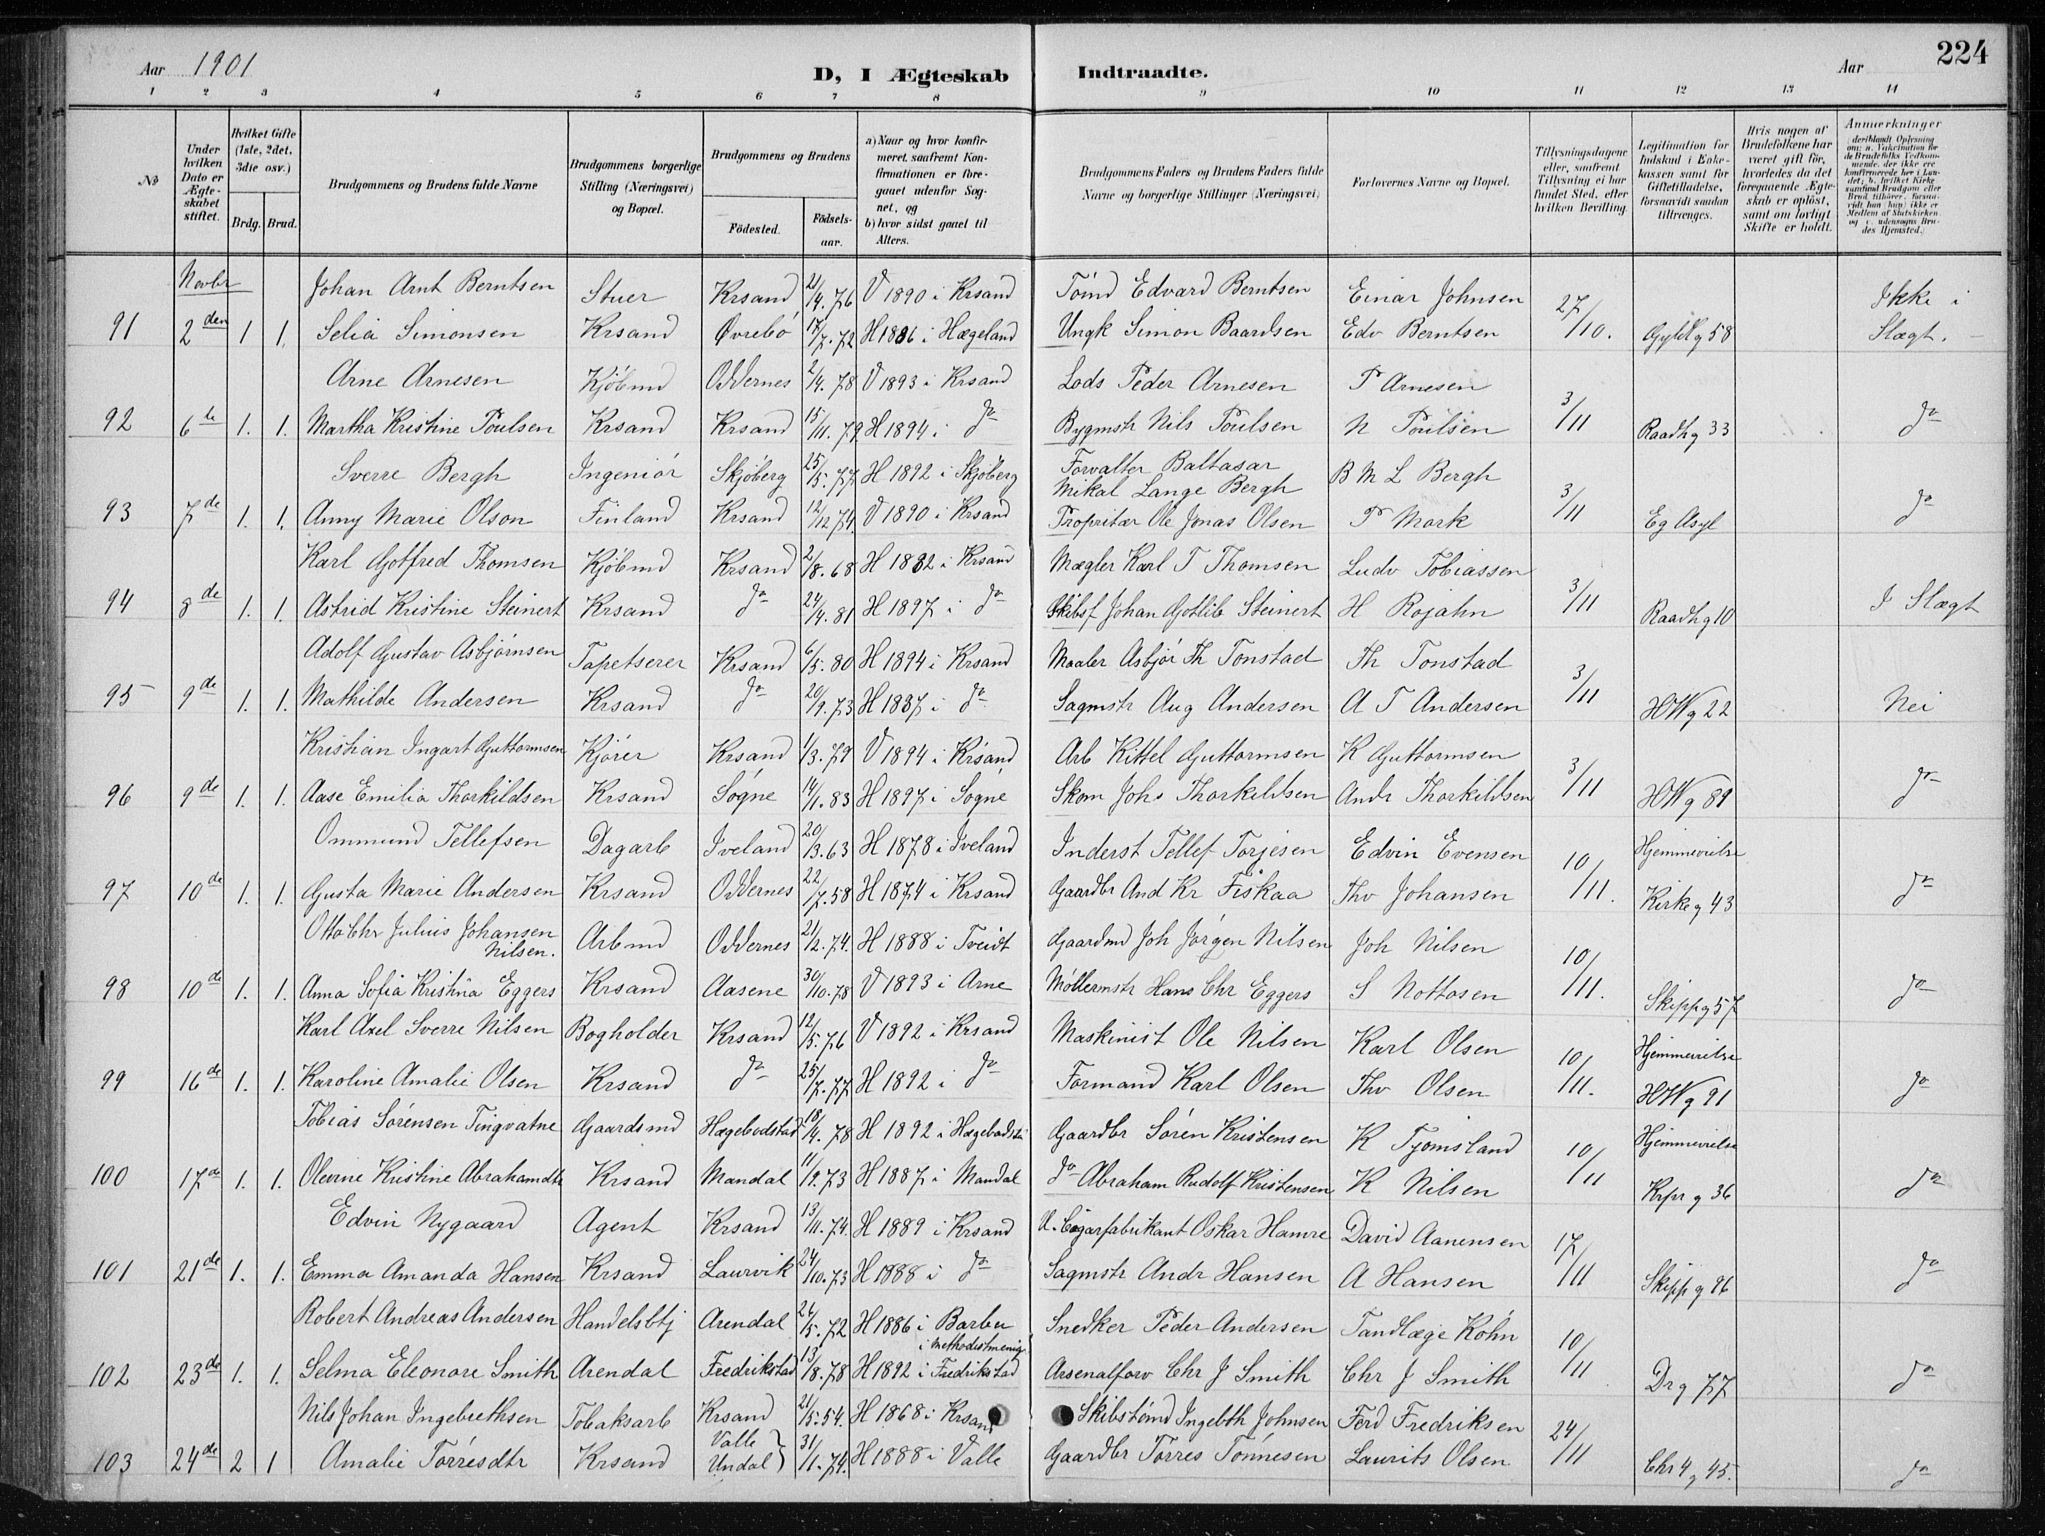 Aar 1901
D, I Ægteskab Indtraadte.
Aar 224
1 2 3 4 5 6 7 8 9 10 11 12 13 14
No
Under hvilken Dato er Ægteskabet stiftet.
Hvilket Gifte (1ste, 2det, 3die osv.)
Brdg. Brud.
Brudgommens og Brudens fulde Navne
Brudgommens borgerlige Stilling (Næringsvei) og Bopæl.
Brudgommens og Brudens
Födested. Födselsaar.
a) Naar og hvor konfirmeret, saafremt Konfirmationen er foregaaet udenfor Sognet, og
b) hvor sidst gaaet til Alters.
Brudgommens Faders og Brudens Faders fulde Navne og borgerlige Stillinger (Næringsvei)
Forlovernes Navne og Bopæl.
Tillysningsdagene eller, saafremt Tillysning ei har fundet Sted, efter hvilken Bevilling.
Legitimation for Indskud i Enkekassen samt for Giftetilladelse, forsaavidt saadan tiltrænges.
Hvis nogen af Brudefolkene har været gift för, hvorledes da det foregaaende Ægteskab er oplöst, samt om lovligt Skifte er holdt.
Anmærkninger
Novbr Johan Arnt Berntsen Stuer Krsand 21/4.76 V 1890 i Krsand Tømd Edvard Berntsen Einar Johnsen 27/10. Ikke i
91 2den 1 1. Selia Simonsen Krsand Øvrebö 17/7.72 H 1886 i Hægeland Ungk Simon Baardsen Edv Berntsen Gyldg 58 Slægt.
Arne Arnesen Kjöbmd Oddernes 2/4.78 V 1893 i Krsand Lods Peder Arnesen P Arnesen 3/11
92 6te 1. 1. Martha Kristine Poulsen Krsand Krsand 15/11.79 H 1894 i do Bygmstr Nils Poulsen N Poulsen Raadhg 33 do
Sverre Bergh Ingeniör Skjöberg 25/5.77 H 1892 i Skjöberg Forvalter Baltasar Mikal Lange Bergh B M L Bergh 3/11
93 7de 1. 1. Anny Marie Olson Finland Krsand 12/12.74. V 1890 i Krsand Propritær Ole Jonas Olsen P Mork Eg Asyl do
Karl Gotfred Thomsen Kjöbmd Krsand 2/8.68 H 1882 i Krsand Mægler Karl T Thomsen Ludv Tobiassen 3/11
94 8de 1. 1. Astrid Kristine Steinert Krsand do 24/4.81 H 1897 i do Skibsf Johan Gotlib Steinert H Rojahn Raadhg 10 I Slægt
Adolf Gustav Asbjørnsen Tapetserer Krsand 6/5.80 H 1894 i Krsand Maaler Asbjør Th Tonstad Th Tonstad 3/11
95 9de 1. 1. Mathilde Andersen Krsand do 20/9.73 H 1887 i do Sagmstr Aug Andersen A T Andersen HWg 22 Nei
Kristian Ingart Guttormsen Kjörer Krsand 1/3.79 V 1894 i Krsand Arb Kittel Guttormsen K Guttormsen 3/11
96 9de 1. 1. Aase Emilia Thorkildsen Krsand Sögne 14/1.83 H 1897 i Sogne Skom Johs Thorkildsen Andr Thorkildsen HWg 89 do
Ommund Tellefsen Dagarb Iveland 20/3.63 H 1878 i Iveland Inderst Tellef Torjesen Edvin Evensen 10/11. Hjemmevielse
97 10de 1. 1. Gusta Marie Andersen Krsand Oddernes 22/7.58 H 1874 i Krsand Gaardbr And Kr Fiskaa Thv Johansen Kirkeg 43 do
Otto Chr Julius Johansen Nilsen. Arbmd Oddernes 21/2.74. H 1888 i Tveidt Gaardmd Joh Jörgen Nilsen Joh Nilsen 10/11.
98 10de 1. 1. Anna Sofia Kristina Eggers Krsand Aasene 30/10.78 V 1893 i Arne Møllermstr Hans Chr Eggers S Nottosen Skippg 57 do
Karl Axel Sverre Nilsen Bogholder Krsand 12/5.76 V 1892 i Krsand Maskinist Ole Nilsen Karl Olsen 10/11. Hjemmevielse
99 16de 1. 1. Karoline Amalie Olsen Krsand do 25/7.77 H 1892 i do Formand Karl Olsen Thv Olsen HWg 91 do
Tobias Sørensen Tingvatne Gaardsmd Hægebodstad 18/4.78 H 1892 i Hægebodstd Gaardbr Sören Kristensen K Tjomsland 10/11 Hjemmevielse
100 17de 1. 1. Olevine Kristine Abrahamdtr Krsand Mandal 11/9.73 H 1887 i Mandal do Abraham Rudolf Kristensen K Nilsen Krpr g 36 do
Edvin Nygaard Agent Krsand 13/11.74. H 1889 i Krsand U. Cigarfabrikant Oskar Hamre David Aanensen 17/11
101 21de 1. 1. Emma Amanda Hansen Krsand Laurvik 24/10.73 H 1888 i do Sagmstr Andr Hansen A Hansen Skippg 86 do
Robert Andreas Andersen Handelsbtj Arendal 26/5.72 H 1886 i Barbu Snedker Peder Andersen Tandlæge Köhn 10/11
i Methodistmenig
102 23de 1. 1. Selma Eleonore Smith Arendal Fredrikstad 13/8.78 H 1892 i Fredrikstad Arsenalforv Chr J Smith Chr J Smith Drg 77 do
Nils Johan Ingebrethsen Tobaksarb Krsand 21/5.54. H 1868 i Krsand Skibstömd Ingebth Johnsen Ferd Fredriksen 24/11
103 24de 2 1 Amalie Törresdtr Krsand Valle Undal 31/11.74. H 1888 i Valle Gaardbr Törres Tönnesen Laurits Olsen Chr 4 g 45. do